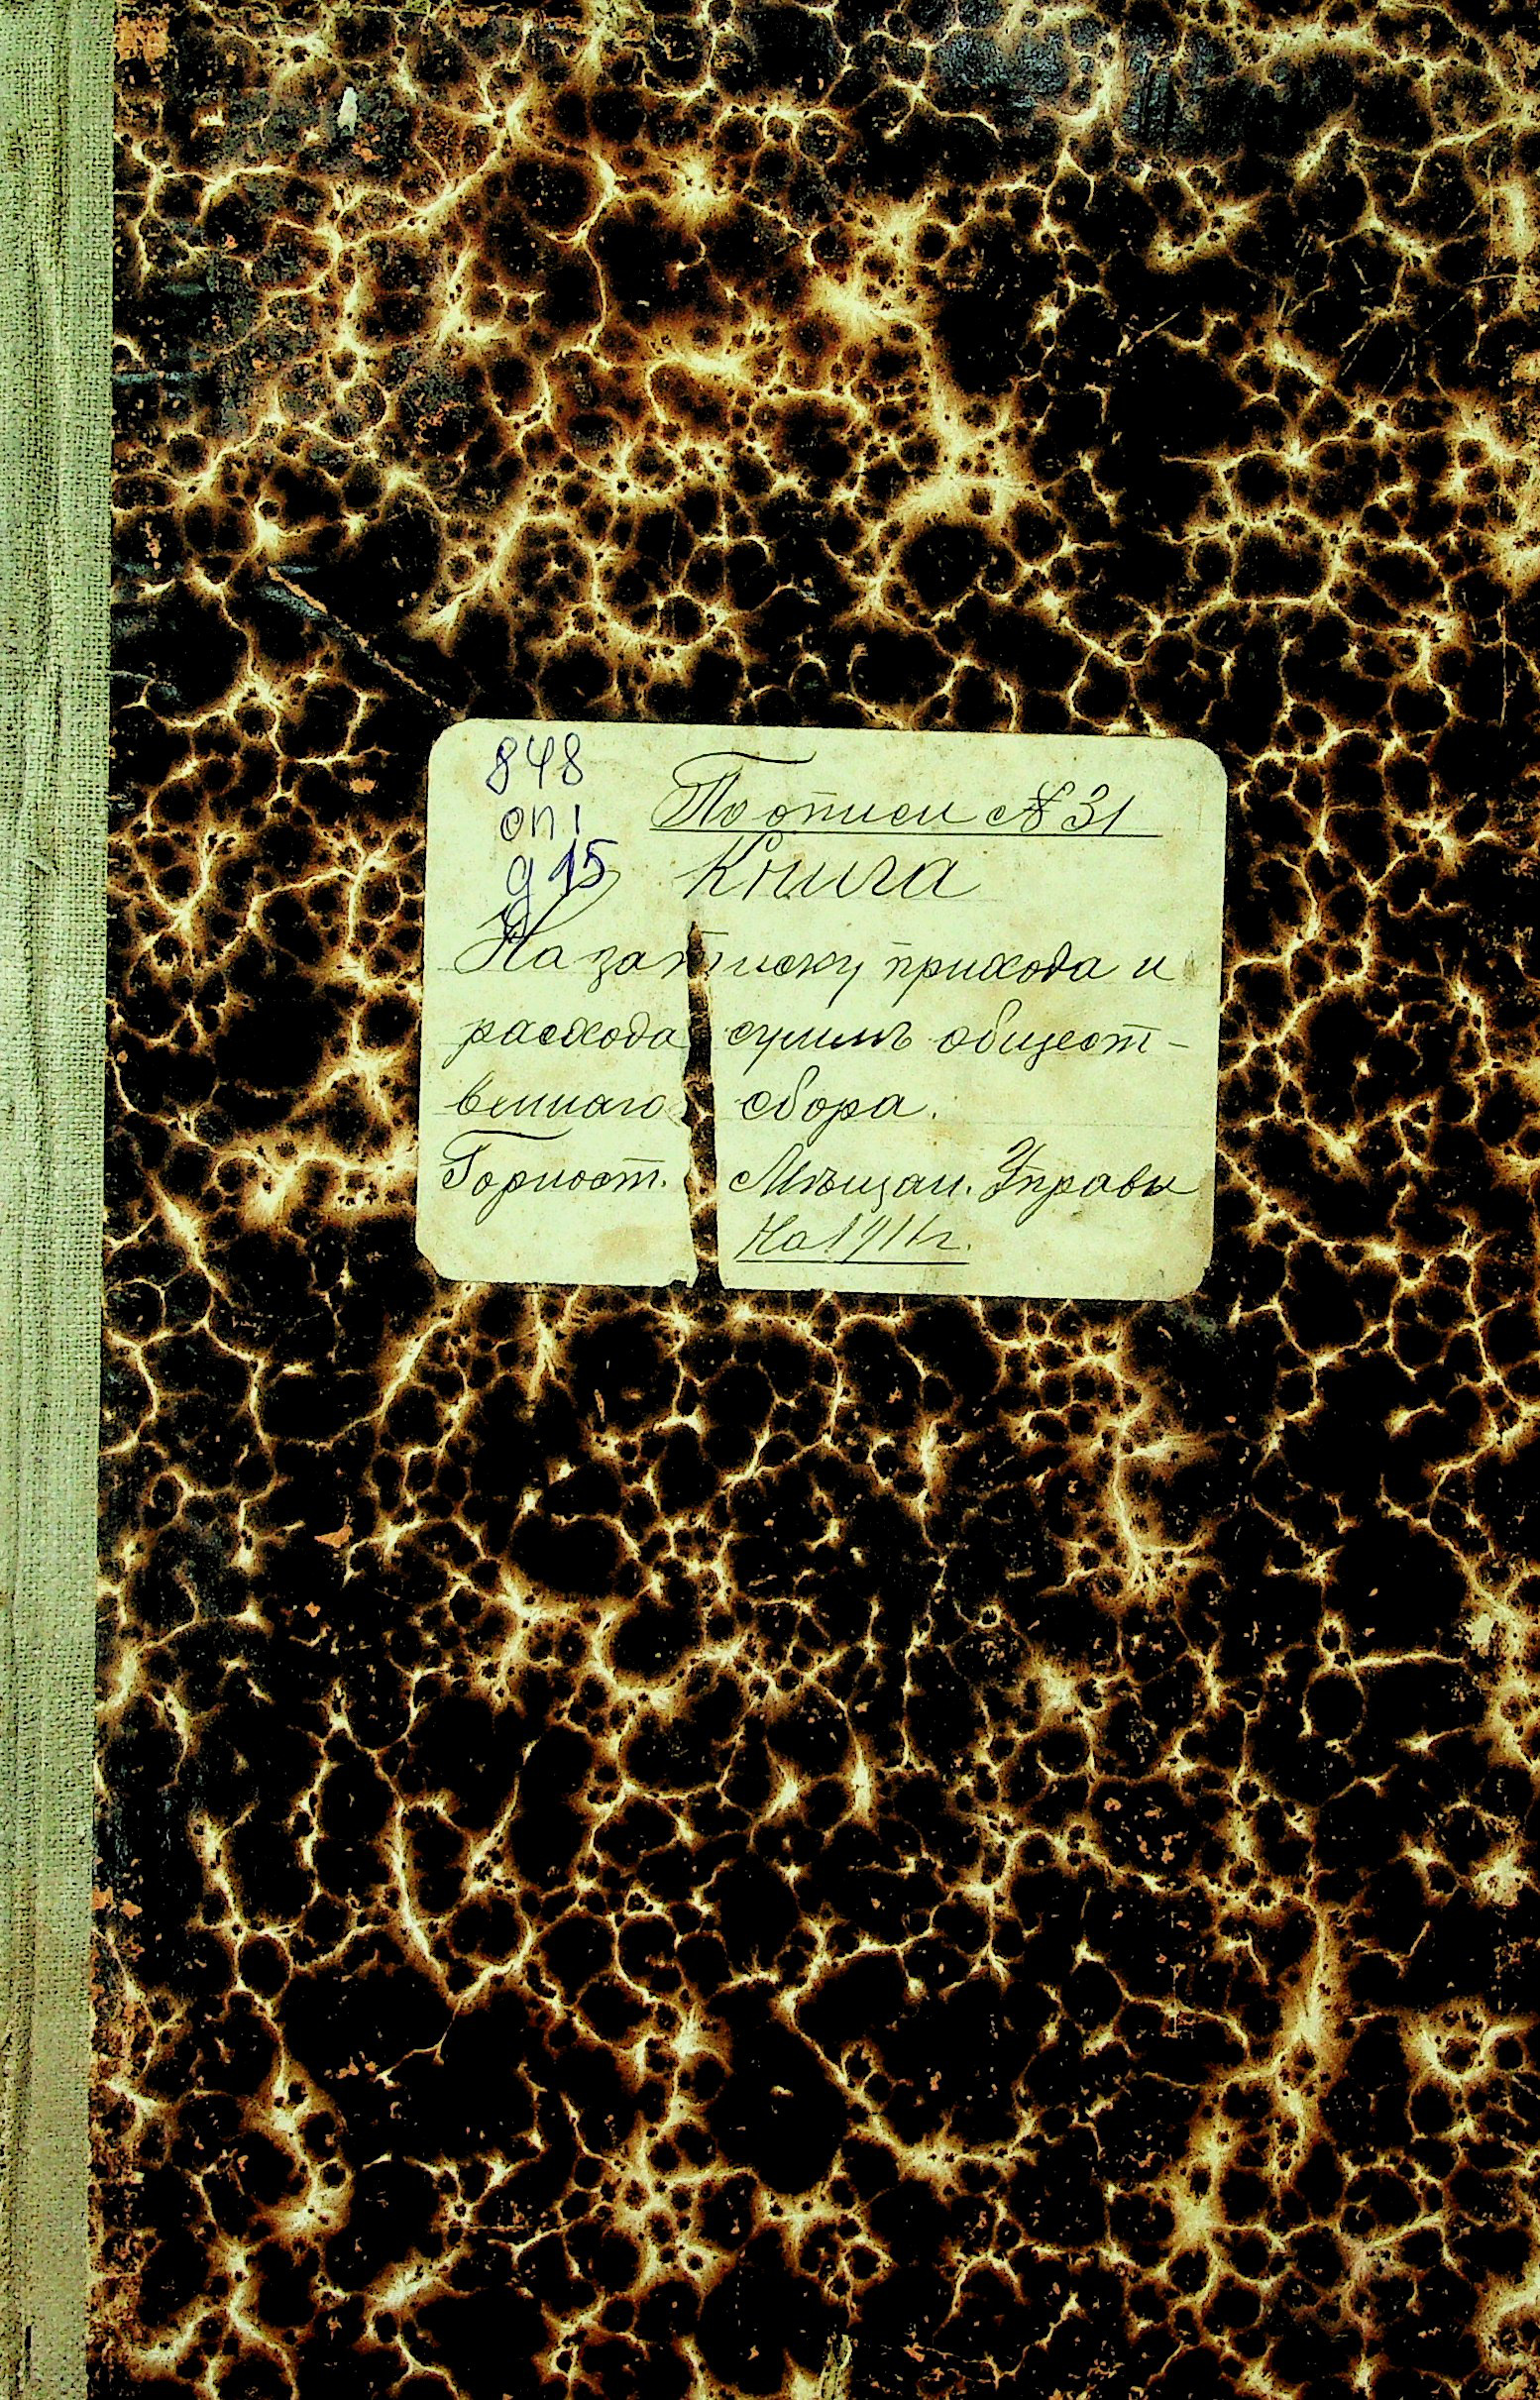 848
оп 1
д 15
По описи № 31
Книга
На записку прихода и
расхода суммъ общест-
веннаго сбора.
Горност. Мѣщан. Управы
На 1911 г.